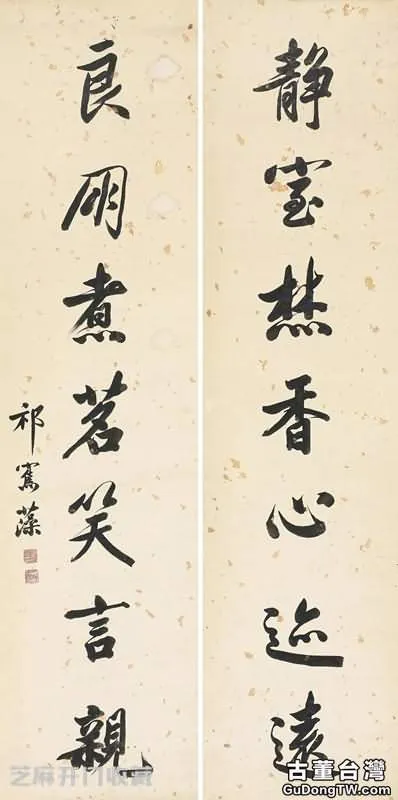 靜室焚香心迹遠
良朋煮茗笑言親
祁寯藻
芝麻开门收藏
古董台灣
GuDongTW.com